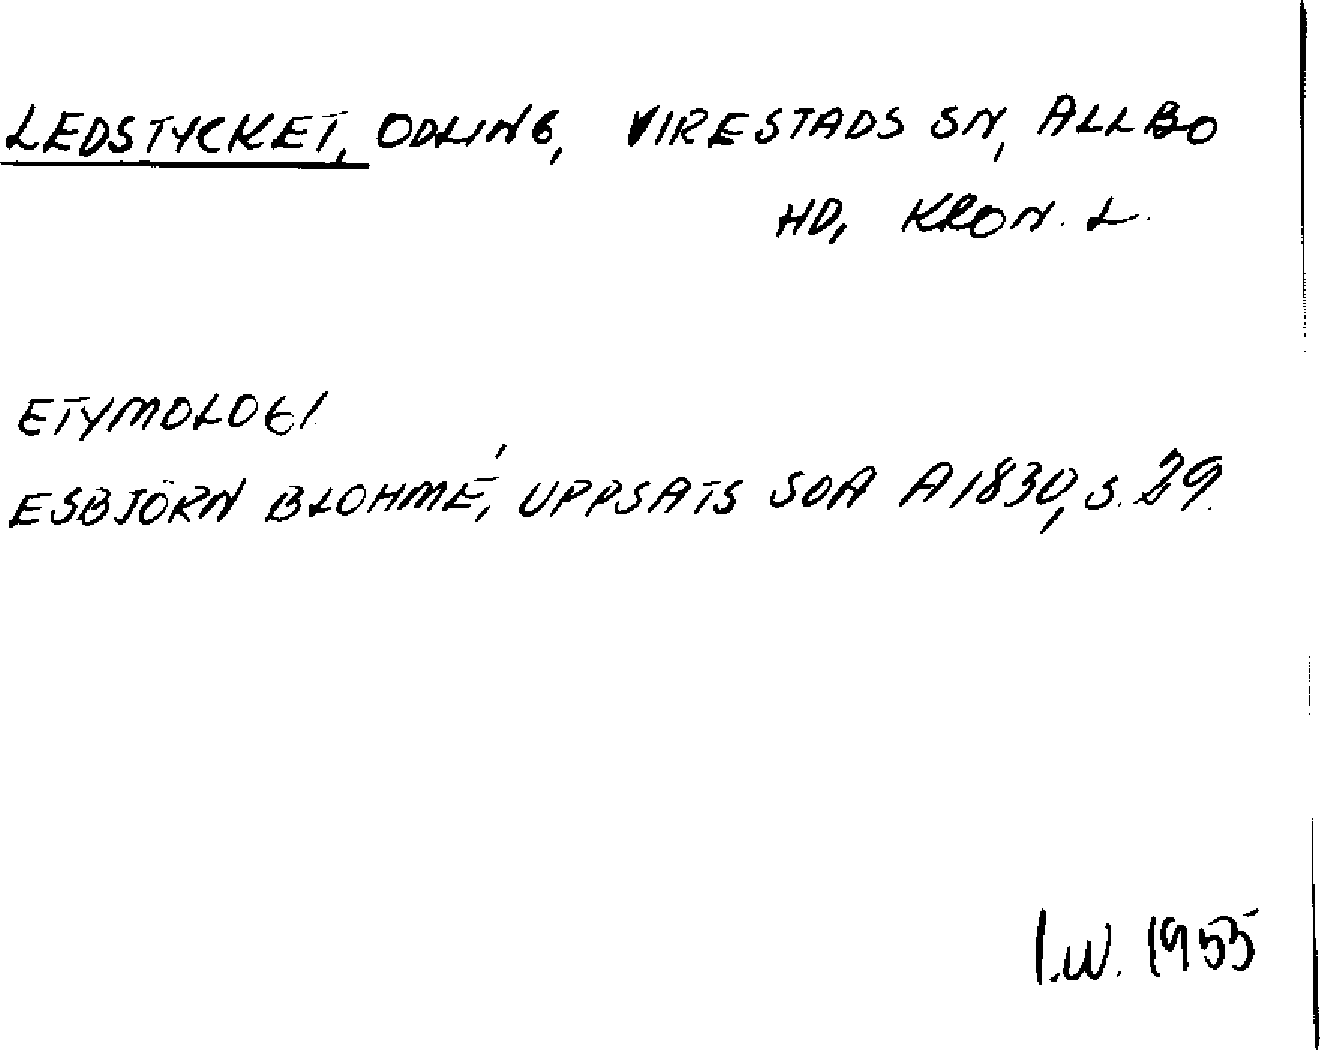 LEDSTYCKET, ODLING, VIRESTADS SN, ALLBO
HD, KRON. L.
ETYMOLOGI
ESBJÖRN BLOHMÉ, UPPSATS SOA A 1830, S. 29.
I.W. 1955